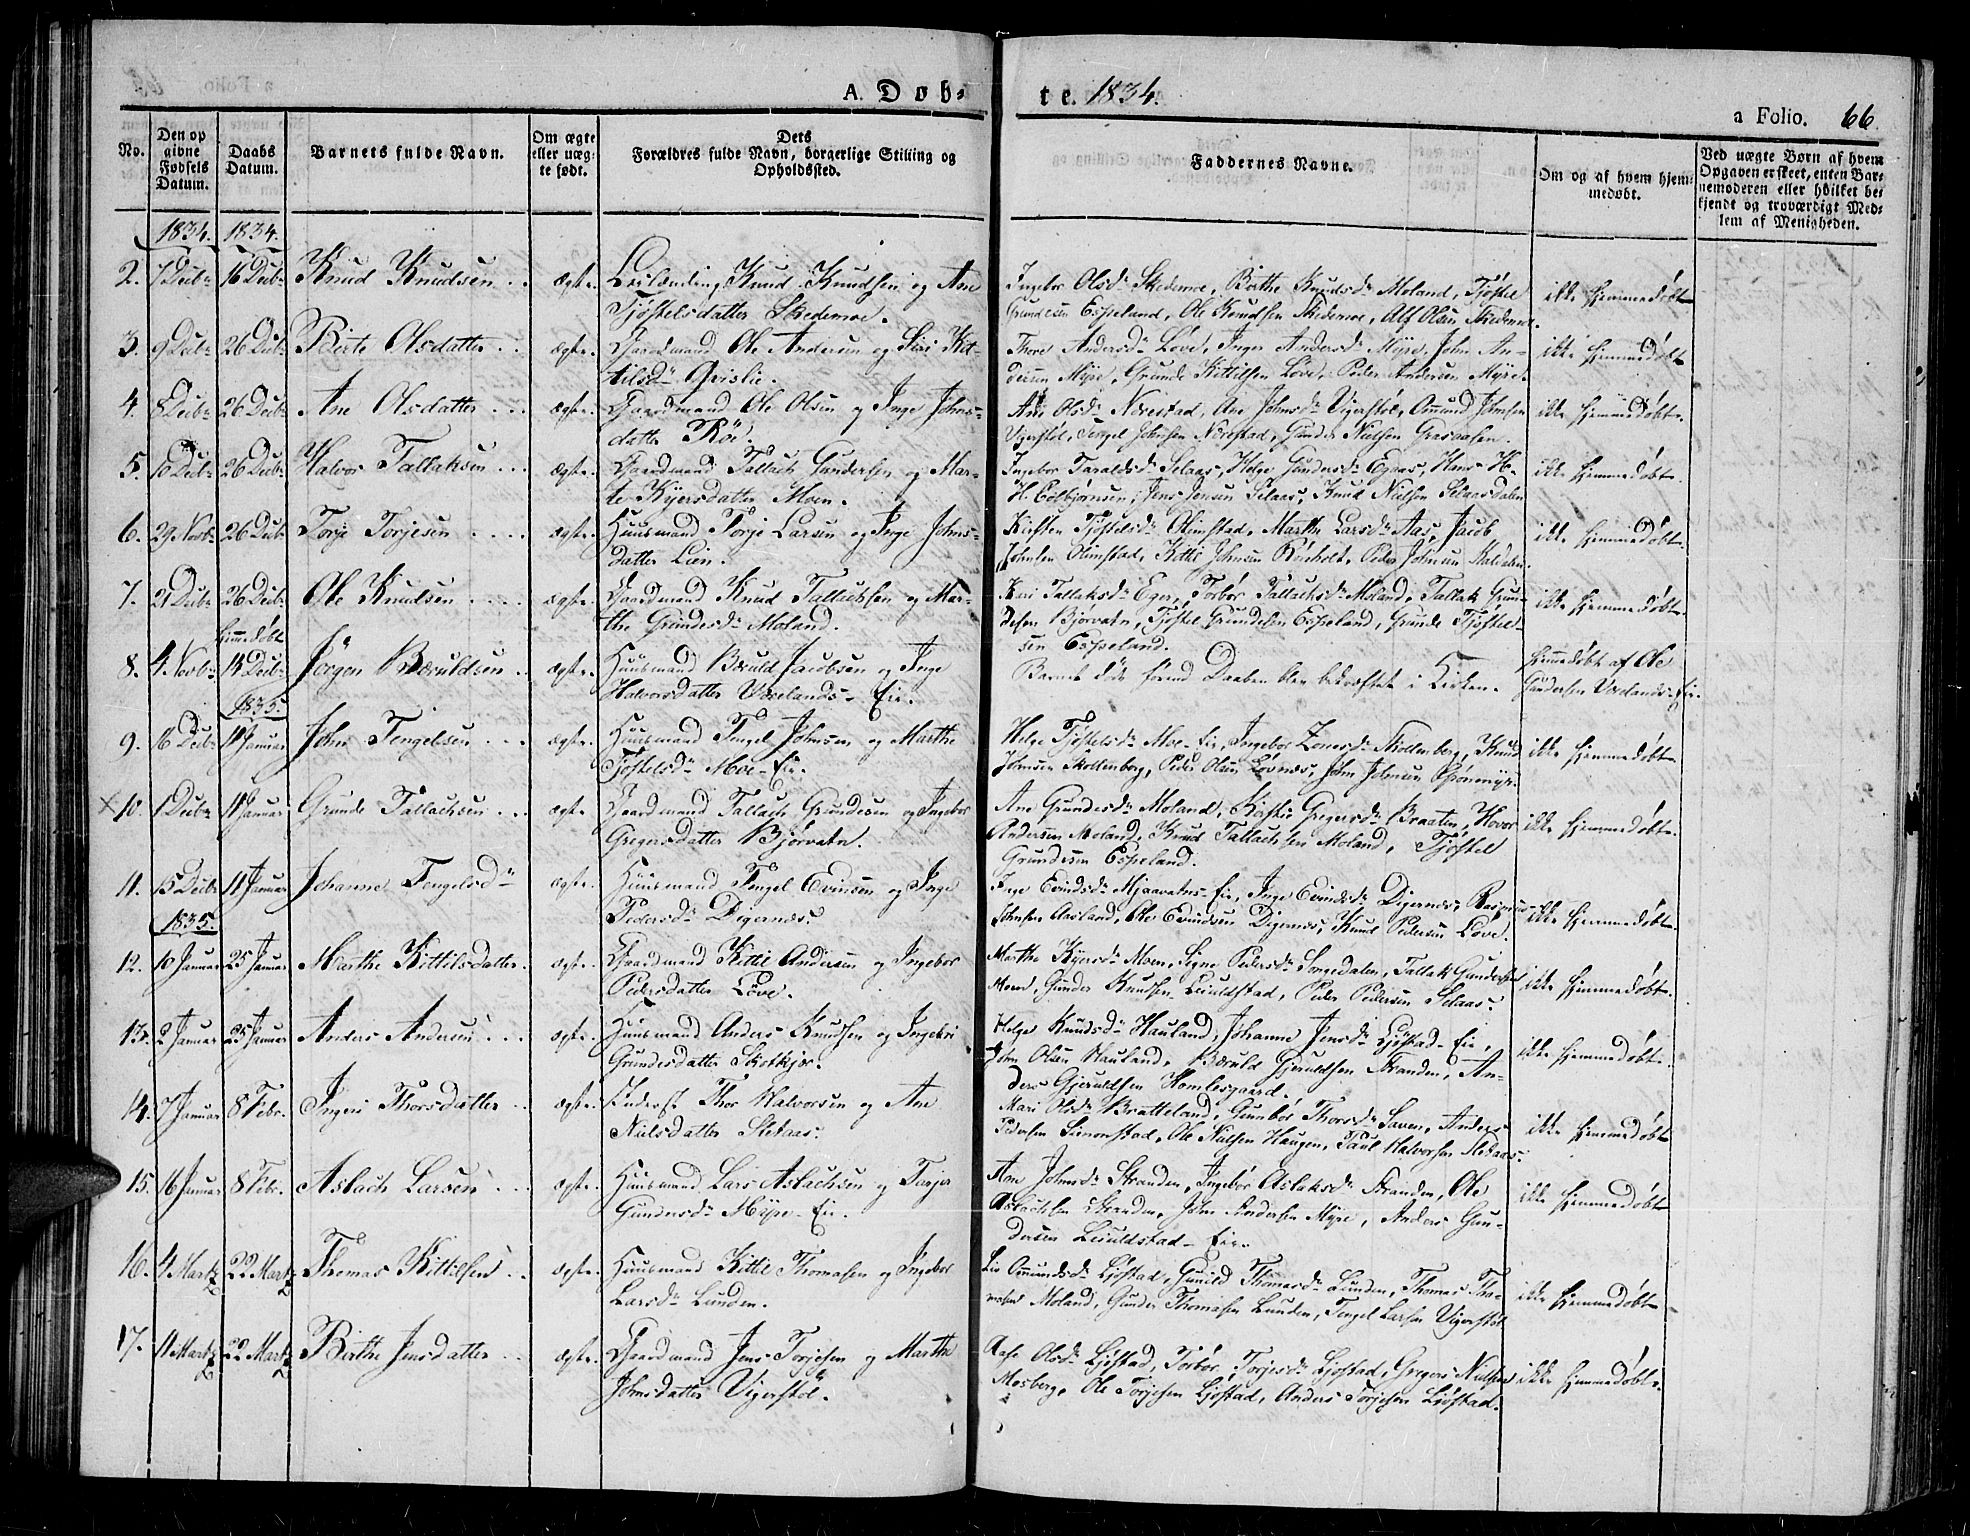 A. Døb-
te. 1834.
a Folio. 66.
No.
Den op
givne
Fødsels
Datum.
Daabs
Datum.
Barnets fulde Navn.
Om ægte
eller uæg-
te født.
Dets
Forældres fulde Navn, borgerlige Stilling og
Opholdssted.
Faddernes Navne.
Om og af hvem hjem-
medøbt.
Ved uægte Børn af hvem
Opgaven er skeet, enten Bar-
nemoderen eller hvilket be-
kjendt og troværdigt Med-
lem af Menigheden.
1834. 1834.
2. 7 Decbr 16 Decbr Knud Knudsen ægte. Knud Knudsen og Ane
Tjøstelsdatter Skedemoe.
Ingebor Olsdr Skedemoe, Birthe Knudsdr Moland, Tjøstel
Grundesen Espeland, Ole Knudsen Skedemoe, Alf Olsen Skedemoe.
ikke hjemmedøbt
3. 9 Decbr 26 Decbr Birte Olsdatter ægte. Gaardmand Ole Andersen og Siri Kit-
tilsdr Qvislie.
Thore Andersdr Løve, Inger Andersdr Myre, John An-
dersen Myre, Grunde Kittilsen Løve, Peder Andersen Myre.
ikke hjemmedøbt
4. 8 Decbr 26 Decbr Ane Olsdatter ægte. Gaardmand Ole Olsen og Inge Johns-
datter Röe.
Ane Olsdr Nerestad, Ane Johnsdr Vigerstöl, Omund Johnsen
Vigerstöl, Tengel Johnsen Nerestad, Gunder Nielsen Graaasen.
ikke hjemmedøbt.
5. 10 Decbr 26 Decbr Halvor Tallaksen ægte. Gaardmand Tallach Gundersen og Mar-
te Kyersdatter Moen.
Ingebor Taraldsdr Selaas, Helge Gundersdr Egaas, Hans H.
H. Esbjørnsen, Jens Jensen Selaas, Knud Nielsen Selaasdalen
ikke hjemmedøbt.
6. 29 Novbr 26 Decbr Torje Torjesen ægte. Huusmand Torje Larsen og Inge Johns-
datter Lien.
Kirsten Tjøstelsdr Olimstad, Marthe Larsdr Aas, Jacob
Johnsen Olimstad, Kittil Johnsen Rönholt, Peder Johnsen Staldalen.
ikke hjemmedøbt.
7. 21 Decbr 26 Decbr Ole Knudsen ægte. Gaardmand Knud Tallachsen og Mar-
the Grundesdr Moland.
Kari Tallaksdr Eger, Torbor Tallachsdr Moland, Tallak Grun-
desen Bjorvatn, Tjøstel Grundesen Espeland, Grunde Tjøstel-
sen Espeland.
ikke hjemmedøbt
hjemmedøbt
8. 4. Novbr 14 Decbr Jörgen Bæruldsen ægte. Huusmand Bæruld Jacobsen og Inge
Halvorsdatter Vrælands-Eie.
Barnet døde førend Daaben blev bekræftet i Kirken.
hjemmedøbt af Ole
Gundersen Vrælands-Eie.
1835.
9. 16 Decbr 11 Januar John Tengelsen ægte. Huusmand Tengel Johnsen og Marthe
Tjøstelsdr Moe-Eie.
Helge Tjøstelsdr Moe-Eie, Ingebor Zonesdr Skollenberg, Knud
Johnsen Skollenberg, Peder Olsen Løvnæs, John Johnsen Grönmyr.
ikke hjemmedøbt.
x 10. 1 Decbr 11 Januar Grunde Tallachsen ægte. Gaardmand Tallach Grundesen og Ingebor
Gregersdatter Bjørvatn.
Ane Grundesdr Moland, Kirstie Gregersdr Braaten, Hovor
Andersen Moland, Knud Tallachsen Moland, Tjøstel
Grundesen Espeland.
ikke hjemmedøbt.
11. 15 Decbr 11 Januar Johanne Tengelsdr ægte. Huusmand Tengel Evinsen og Inge
Pedersdr Digernæs.
Inge Evindsdr Mjaavatns-Eie, Inge Evindsdr Digernæs, Rasmus
Johnsen Aasland, Ole Evindsen Digernæs, Knud Pedersen Løve.
ikke hjemmedøbt.
1835.
12. 10 Januar 25 Januar Marthe Kittilsdatter. ægte. Gaardmand Kittil Andersen og Ingebor
Pedersdatter Løve.
Marthe Kyersdr Moen, Signe Pedersdr Songedalen, Tallak Gundersen
Moen, Gunder Knudsen Leiuldstad, Peder Pedersen Selaas.
ikke hjemmedøbt.
13. 2 Januar 25 Januar Anders Andersen ægte. Huusmand Anders Knudsen og Ingebor
Grundesdatter Skotkjer.
Helge Knudsdr Hauland, Johanne Jensdr Ljøstad-Eie,
John Olsen Hauland, Bæruld Gjeruldsen Stranden, An-
ders Gjeruldsen Homlesgaard.
ikke hjemmedøbt.
14. 7 Januar 8 Febr. Ingeri Thorsdatter ægte. Inderst Thor Halvorsen og Ane
Nielsdatter Slekaas.
Mari Olsdr Bratteland, Gunbor Thorsdr Saven, Anders
Pedersen Simonstad, Ole Nielsen Haugen, Paul Halvorsen Slekaas.
ikke hjemmedøbt
15. 16 Januar 8 Febr. Aslach Larsen ægte. Huusmand Lars Aslachsen og Torjer
Gundersdr Myre-Eie.
Ane Johnsdr Stranden, Ingebor Aslaksdr Stranden, Ole
Aslachsen Stranden, John Andersen Myre, Anders Gun-
dersen Leiuldstad-Eie.
ikke hjemmedøbt
16. 4 Martz 22 Martz Thomas Kittilsen ægte. Huusmand Kittil Thomasen og Ingebor
Larsdr Lunden.
Liv Omundsdr Ljøstad, Gunild Thomasdr Lunden, Thomas Tho-
masen Moland, Gunder Thomasen Lunden, Tengel Larsen Vigerstöl
ikke hjemmedøbt
17. 11 Martz 22 Martz Birthe Jensdatter ægte. Gaardmand Jens Torjesen og Marthe
Johnsdatter Vigerstöl.
Aase Olsdr Ljøstad, Torbor Torjesdr Ljøstad, Gregers Nielsen
Mosberg, Ole Torjesen Ljøstad, Anders Torjesen Ljøstad.
ikke hjemmedøbt.